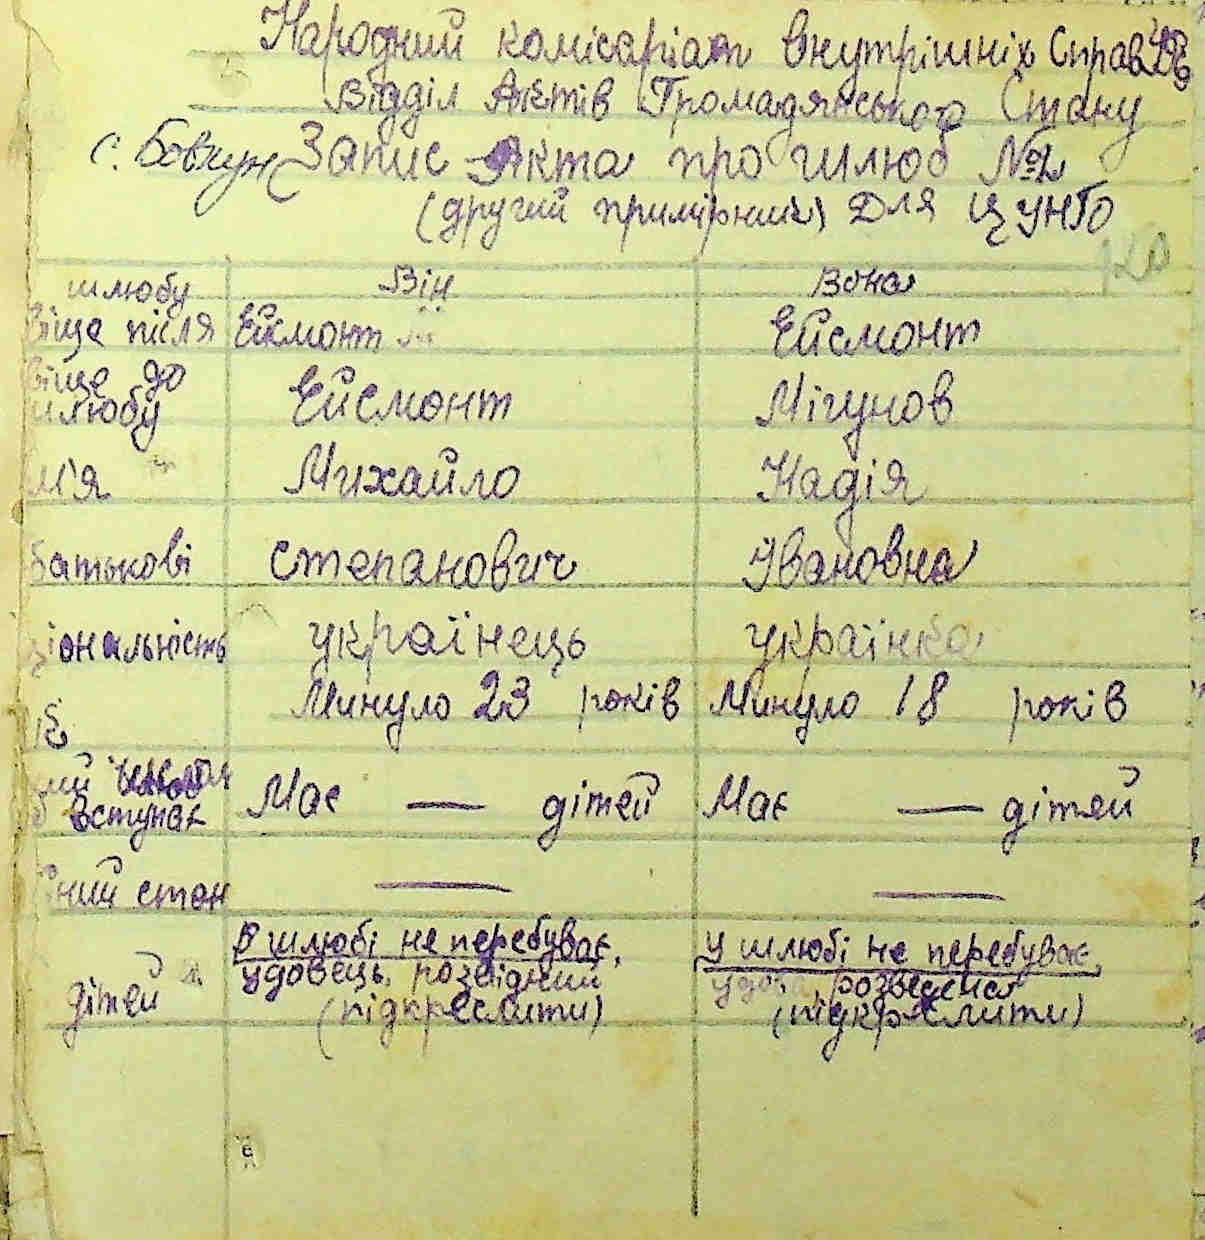 Народний комісаріат внутрішніх Справ
Відділ Актів Громадянського Стану
с. Бовкун Запис Акта про шлюб №2
(другий примірник) Для ЦУНГО
120
шлюбу Він Вона
віще після Ейсмонт Ейсмонт
віще до
шлюбу Ейсмонт Мігунов
м'я Михайло Надія
батькові Степанович Івановна
ціональність українець українка
Минуло 23 років Минуло 18 років
ий
вступає Має — дітей Має — дітей
ний стан — —
В шлюбі не перебуває, У шлюбі не перебуває,
удовець, розвідний удова, розведена
дітей (підкреслити) (підкреслити)